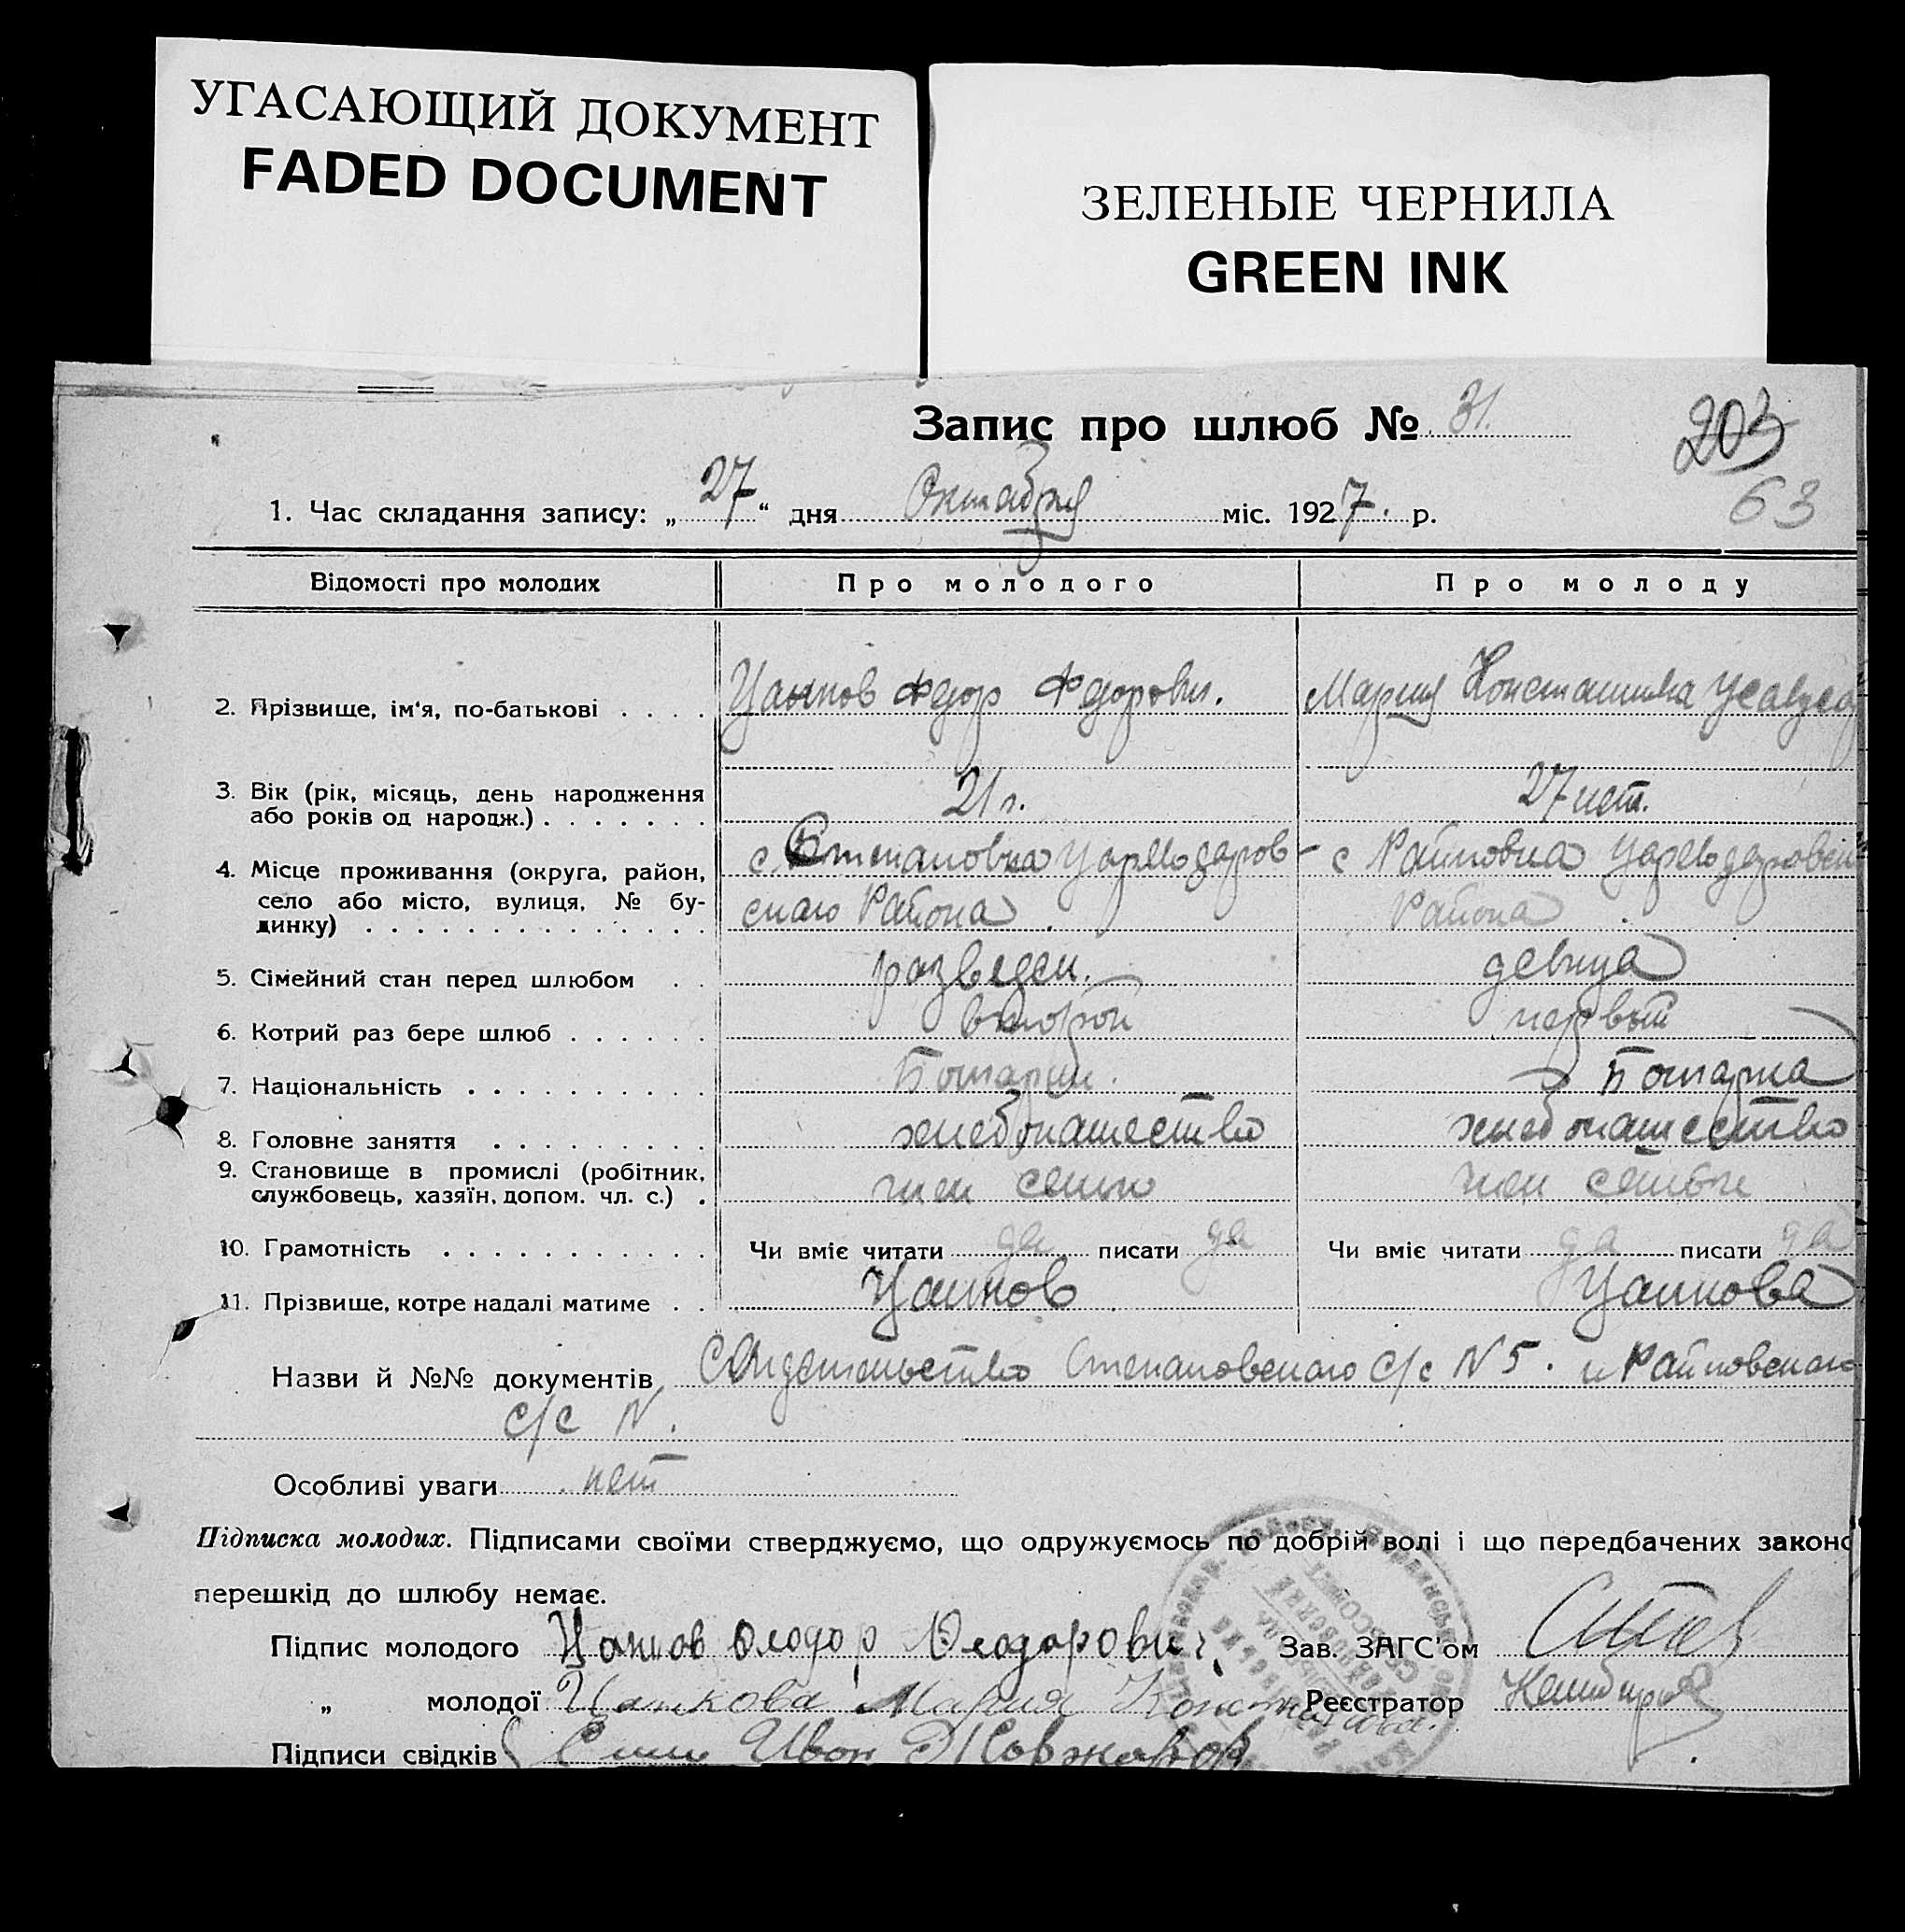 УГАСАЮЩИЙ ДОКУМЕНТ
FADED DOCUMENT
ЗЕЛЕНЫЕ ЧЕРНИЛА
GREEN INK
Запис про шлюб № 31.
203
63
1. Час складання запису: „27“ дня Октября міс. 1927. р.
Відомості про молодих Про молодого Про молоду
2. Прізвище, ім'я, по-батькові . . . . Цанков Федор Федоров. Мария Константинова
3. Вік (рік, місяць, день народження
або років од народж.) . . . . . . . 21 г. 27 лет.
4. Місце проживання (округа, район, с Степановка Цареводаров- с Райновка Цареводаровск
село або місто, вулиця, № бу- скаго Района. Района
динку) . . . . . . . . . . . . . .
5. Сімейний стан перед шлюбом . . разведен. девица
6. Котрий раз бере шлюб . . . . . . второй первый
7. Національність . . . . . . . . . Болгарин. Болгарка
8. Головне заняття . . . . . . . . хлебопашество хлебопашество
9. Становище в промислі (робітник,
службовець, хазяїн, допом. чл. с.) . член семьи член семьи
10. Грамотність . . . . . . . . . . . Чи вміє читати да писати да Чи вміє читати да писати да
11. Прізвище, котре надалі матиме . . Цанков Цанкова
Назви й №№ документів Свидетельство Степановскаго С/с N 5. и Райновскаго
С/с N.
Особливі уваги нет
Підписка молодих. Підписами своїми стверджуємо, що одружуємось по добрій волі і що передбачених законо
перешкід до шлюбу немає.
Підпис молодого Цанков Зав. ЗАГС'ом
„ молодої Цанкова Мария Реєстратор
Підписи свідків Иван